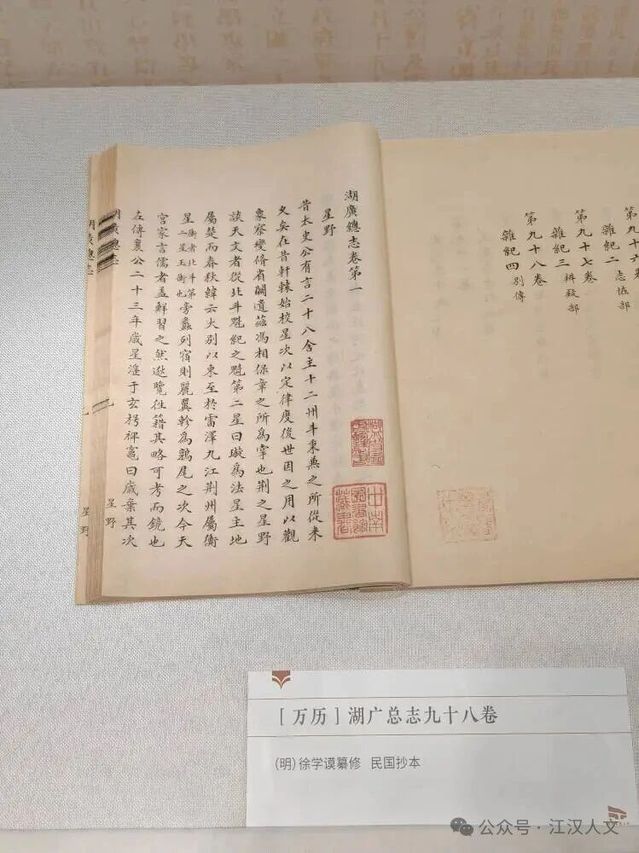 第九十六卷
雜紀二 志恠部
第九十七卷
雜紀三 部
第九十八卷
雜紀四 別傳
湖廣總志卷第一
星野
昔太史公有言二十八舍主十二州斗秉兼之所從來
久矣在昔軒轅始校星次以定律度後世因之用以觀
象察變脩省闕遺蓋馮相保章之所為掌也荊之星野
談天文者從北斗魁紀之魁第二星曰璇為法星主地
屬楚而春秋緯云大別以東至於雷澤九江荊州屬衡
星衡者北斗第二星玉衡也旁羅列宿則麗翼軫為鶉尾之次今天
官家言儒者盖鮮習之然逖覽往籍其略可考而鏡也
左傳襄公二十三年歲星淫于玄枵裨竈曰歲棄其次
湖廣總志
星野
湖廣總志
星野
[万历]湖广总志九十八卷
(明)徐学谟纂修 民国抄本
公众号·江汉人文